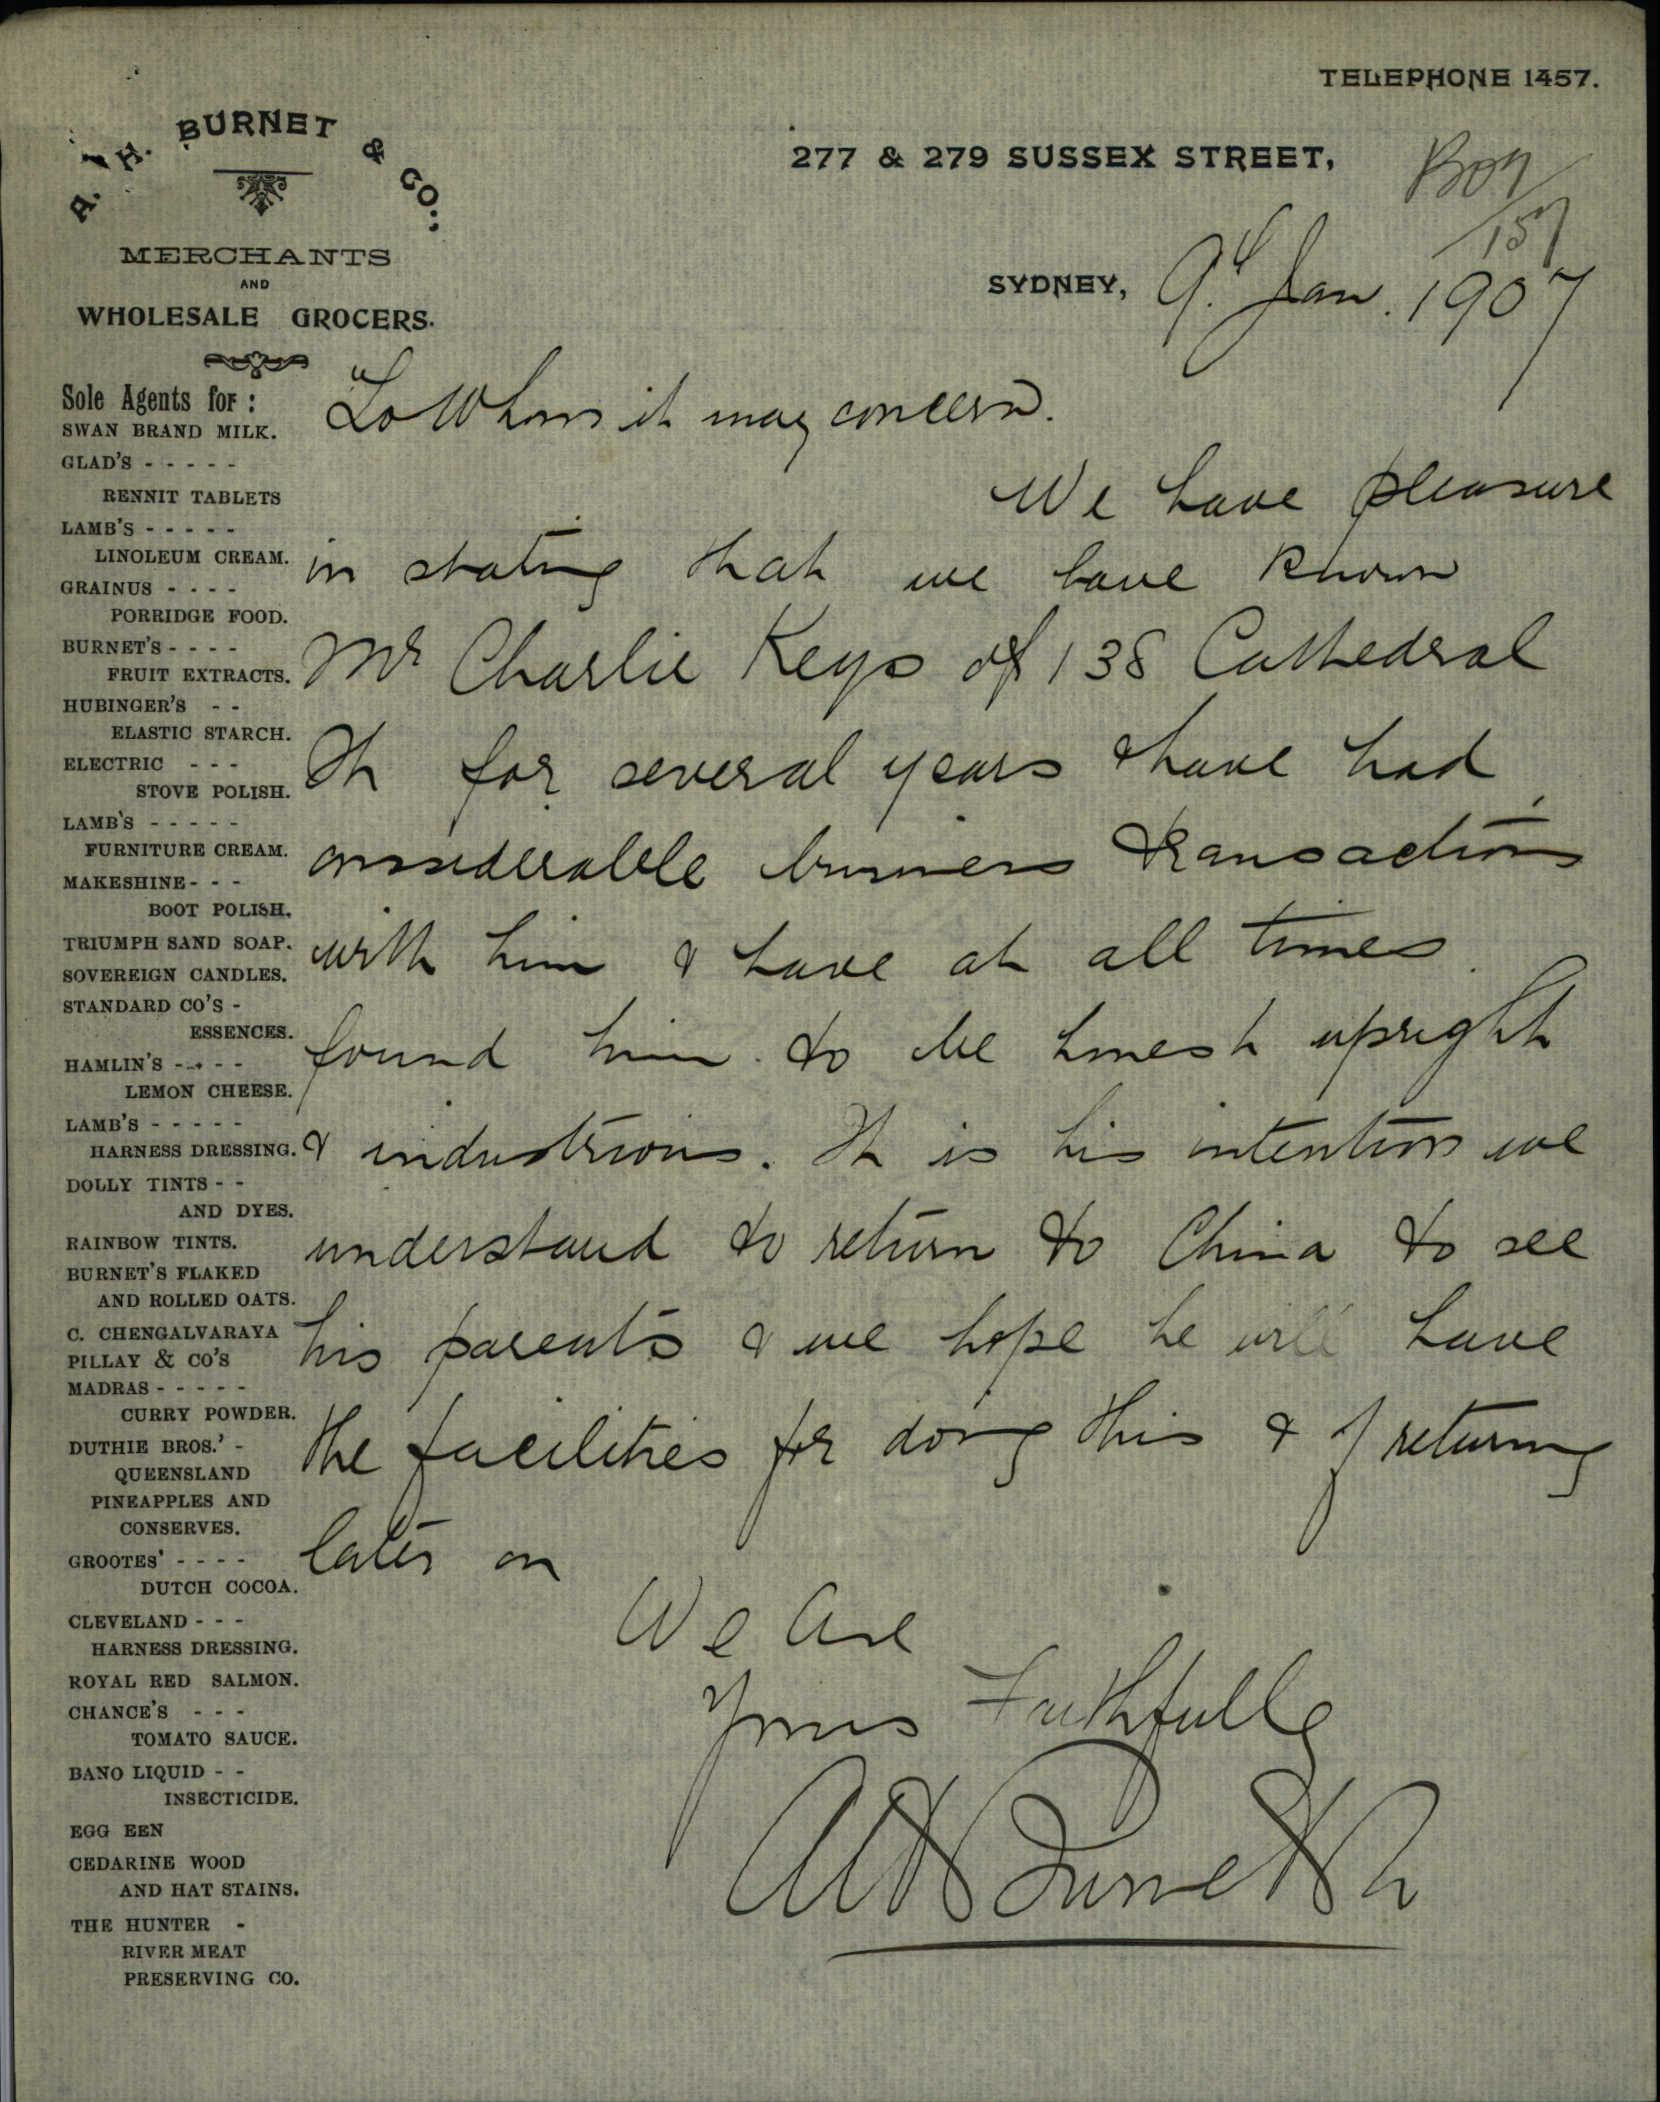 TELEPHONE 1457.
A. H. BURNET & CO.,
277 & 279 SUSSEX STREET,
B07/157
MERCHANTS
AND
WHOLESALE GROCERS.
SYDNEY, 9th Jan. 1907
Sole Agents for :
SWAN BRAND MILK.
GLAD'S - - - - -
RENNIT TABLETS
LAMB'S - - - - -
LINOLEUM CREAM.
GRAINUS - - - -
PORRIDGE FOOD.
BURNET'S - - - -
FRUIT EXTRACTS.
HUBINGER'S - -
ELASTIC STARCH.
ELECTRIC - - -
STOVE POLISH.
LAMB'S - - - - -
FURNITURE CREAM.
MAKESHINE - - -
BOOT POLISH.
TRIUMPH SAND SOAP.
SOVEREIGN CANDLES.
STANDARD CO'S -
ESSENCES.
HAMLIN'S - - - -
LEMON CHEESE.
LAMB'S - - - - -
HARNESS DRESSING.
DOLLY TINTS - -
AND DYES.
RAINBOW TINTS.
BURNET'S FLAKED
AND ROLLED OATS.
C. CHENGALVARAYA
PILLAY & CO'S
MADRAS - - - - -
CURRY POWDER.
DUTHIE BROS.' -
QUEENSLAND
PINEAPPLES AND
CONSERVES.
GROOTES' - - - -
DUTCH COCOA.
CLEVELAND - - -
HARNESS DRESSING.
ROYAL RED SALMON.
CHANCE'S - - -
TOMATO SAUCE.
BANO LIQUID - -
INSECTICIDE.
EGG EEN
CEDARINE WOOD
AND HAT STAINS.
THE HUNTER -
RIVER MEAT
PRESERVING CO.
To Whom it may concern.
We have pleasure
in stating that we have known
Mr Charlie Keys of 138 Cathedral
St for several years & have had
considerable business transactions
with him & have at all times
found him to be honest upright
& industrious. It is his intention we
understand to return to China to see
his parents & we hope he will have
the facilities for doing this & of returning
later on
We are
Yours Faithfully
A H Burnet & Co